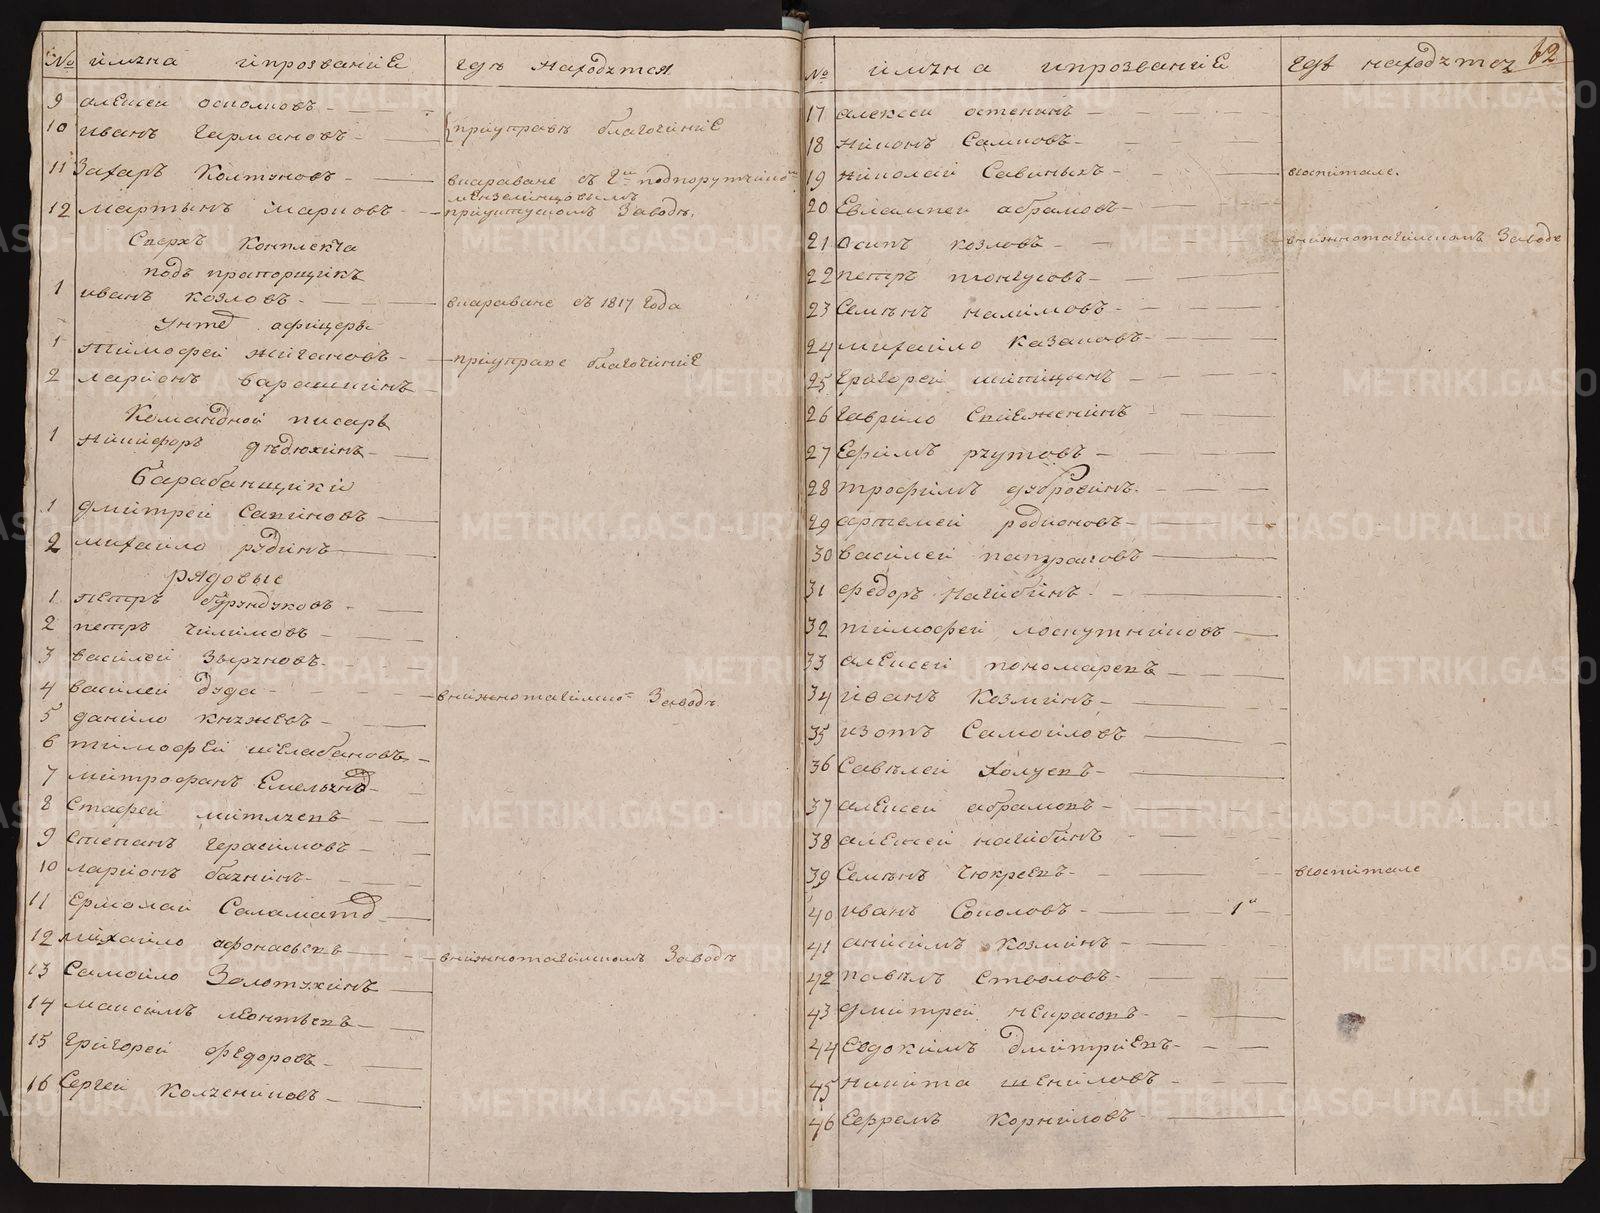 № имѧна ипрозвание где находѧтся
9 алексеи осколковъ
10 иванъ Германовъ приуправѣ благочиниЕ
11 Захаръ Колтуновъ вкараване съ Г.мъ подпорутчико.мъ
мензелинцовымъ
12 мартынъ марковъ приуткускомъ Заводѣ,
Сверхъ Комплекта
подъ прапорщикъ
1 иванъ козловъ вкараване съ 1817 года
Унтеръ афицеры
1 тимофей жигановъ приуправе благочиниЕ
2 ларионъ барашкинъ
Командной писарь
1 никифоръ дѣдюхинъ
барабанщики
1 дмитрей Сапиновъ
2 михаило рудинъ
рядовые
1 петръ бурундуковъ
2 петръ чилимовъ
3 василеи Зырѧновъ
4 василеи дуда внижнотагилско.мъ Заводѣ
5 данило кнѧжевъ
6 тимофей шелабановъ
7 митрофанъ Емельѧновъ
8 Стафеи митѧевъ
9 степанъ герасимовъ
10 ларионъ баѧнинъ
11 Ермолаи Саламатовъ
12 михаило афонасьевъ внижнотагилскомъ Заводѣ
13 Самойло Золотухинъ
14 максимъ леонтьевъ
15 григореи федоровъ
16 Сергеи колѧсниковъ
62
№ имѧна ипрозвание гдѣ находѧтсѧ
17 алексеи остенинъ
18 никонъ Салковъ
19 николай Савиныхъ вгоспитале.
20 Евлампеи абрамовъ
21 осипъ козловъ внижнотагилскомъ Заводе
22 петръ тонкусовъ
23 Семенъ налимовъ
24 михаило казаковъ
25 григореи шипицынъ
26 гаврило Снеженинъ
27 Ефимъ рѧутовъ
28 трофимъ дубровинъ
29 артемеи родионовъ
30 василеи патраковъ
31 федоръ нагибинъ
32 тимофей лоскутниковъ
33 алексеи пономаревъ
34 иванъ козминъ
35 изотъ Самойловъ
36 Савѣлеи холуевъ
37 алексеи абрамовъ
38 алексеи нагибинъ
39 Семѣнъ чюкреевъ вгоспитале
40 иванъ Соколовъ 1"
41 анисимъ козминъ
42 павѣлъ Стволовъ
43 дмитреи некрасовъ
44 Евдокимъ дмитриевъ
45 никита шениловъ
46 Ефремъ корниловъ
METRIKI.GASO-URAL.RU